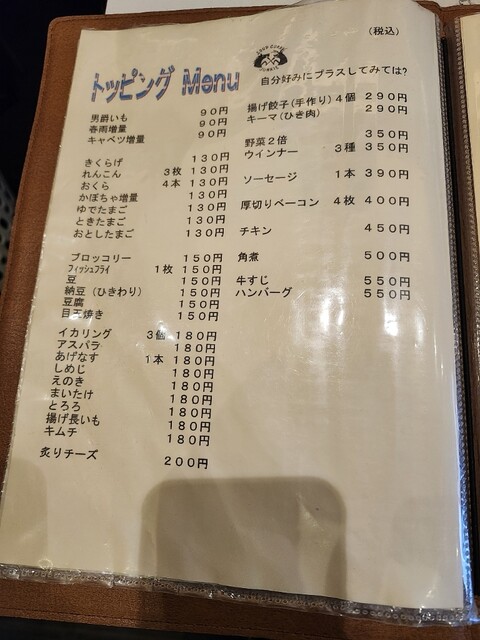 (税込)
トッピング Menu
自分好みにプラスしてみては?
男爵いも 90円
春雨増量 90円
キャベツ増量 90円
きくらげ 130円
れんこん 3枚 130円
おくら 4本 130円
かぼちゃ増量 130円
ゆでたまご 130円
ときたまご 130円
おとしたまご 130円
ブロッコリー 150円
フィッシュフライ 1枚 150円
豆 150円
納豆(ひきわり) 150円
豆腐 150円
目玉焼き 150円
イカリング 3個 180円
アスパラ 180円
あげなす 1本 180円
しめじ 180円
えのき 180円
まいたけ 180円
とろろ 180円
揚げ長いも 180円
キムチ 180円
炙りチーズ 200円
揚げ餃子(手作り)4個 290円
キーマ(ひき肉) 290円
野菜2倍 350円
ウインナー 3種 350円
ソーセージ 1本 390円
厚切りベーコン 4枚 400円
チキン 450円
角煮 500円
牛すじ 550円
ハンバーグ 550円